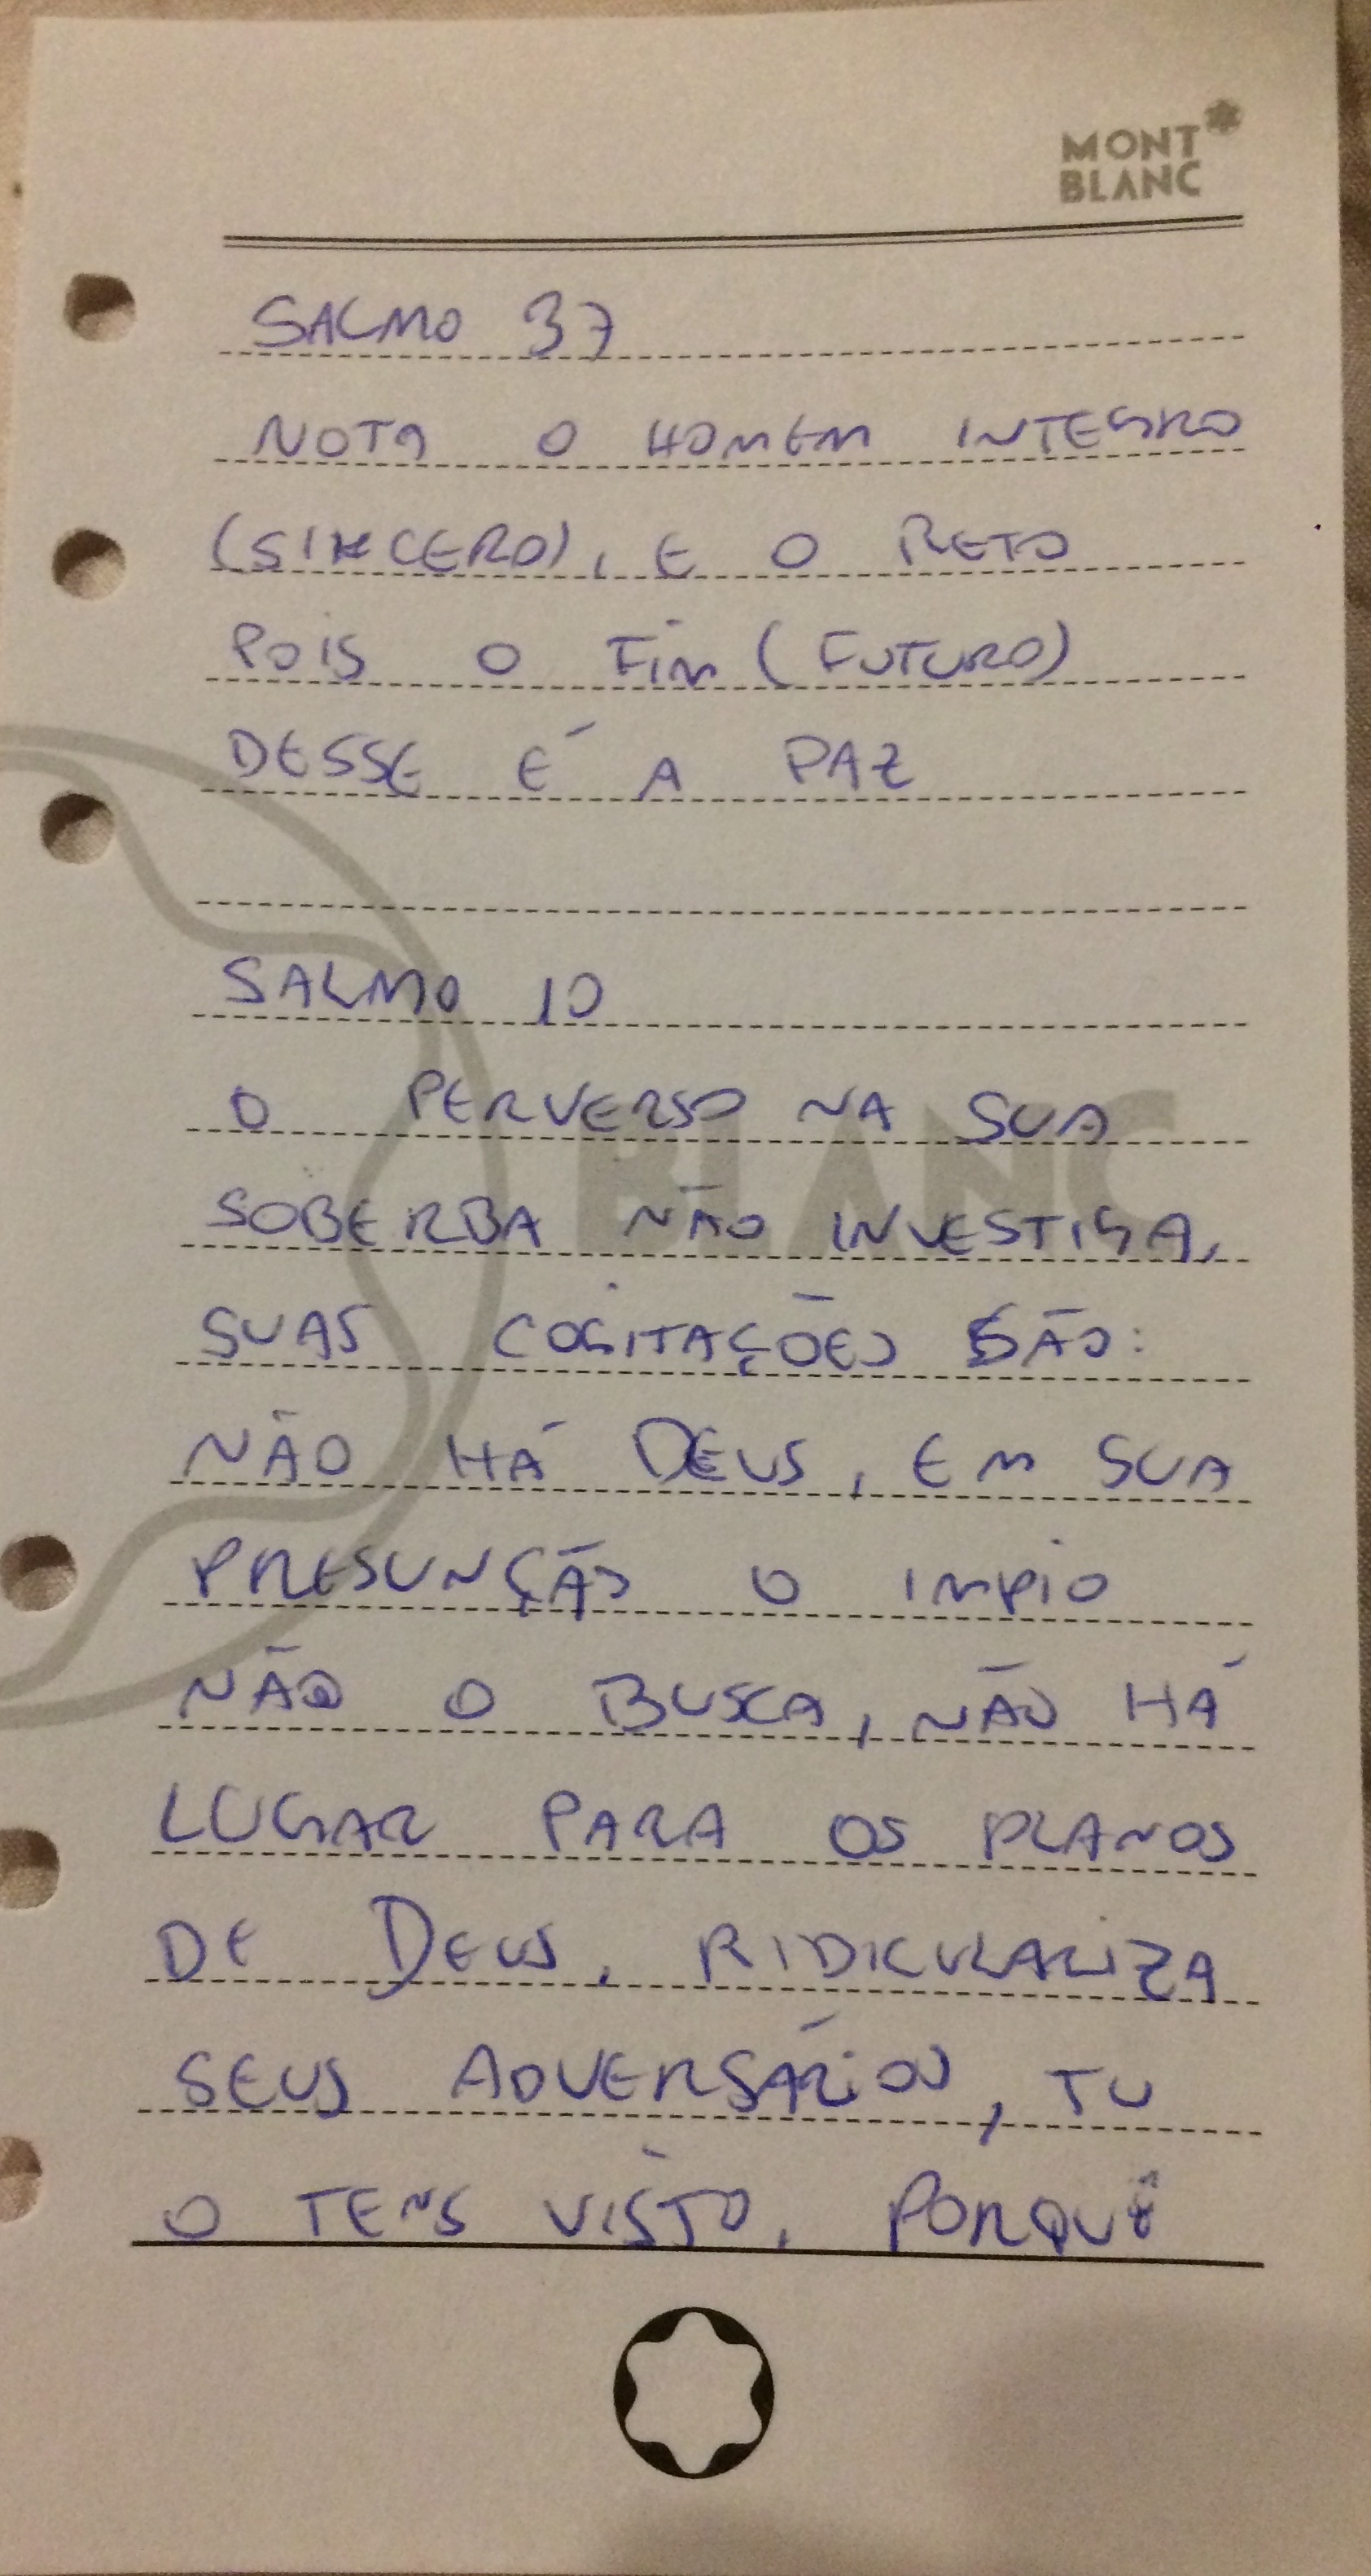 MONT
BLANC
SALMO 37
NOTA O HOMEM INTEGRO
(SINCERO), E O RETO
POIS O FIM (FUTURO)
DESSE É A PAZ
SALMO 10
O PERVERSO NA SUA
BLANC
SOBERBA NÃO INVESTIGA,
SUAS COGITAÇÕES SÃO:
NÃO HÁ DEUS, EM SUA
PRESUNÇÃO O IMPIO
NÃO O BUSCA, NÃO HÁ
LUGAR PARA OS PLANOS
DE DEUS, RIDICULARIZA
SEUS ADVERSÁRIOS, TU
O TENS VISTO, PORQUÊ